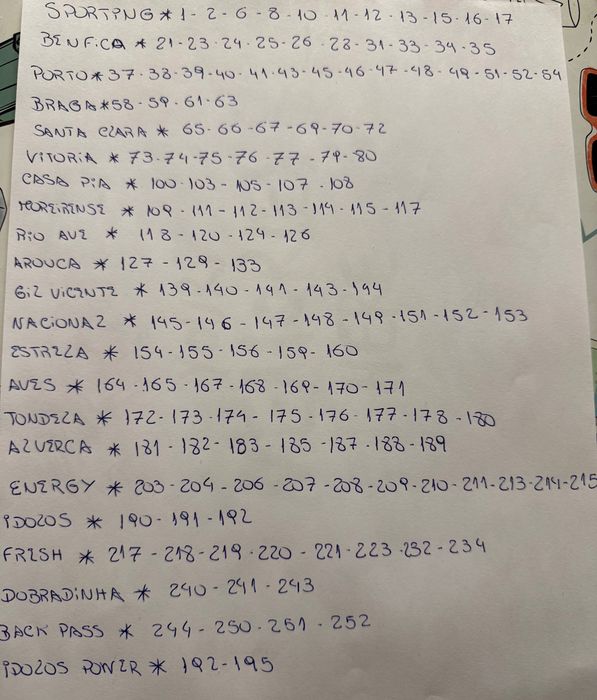 SPORTING * 1 - 2 - 6 - 8 - 10 - 11 - 12 - 13 - 15 - 16 - 17
BENFICA * 21 - 23 - 24 - 25 - 26 - 28 - 31 - 33 - 34 - 35
PORTO * 37 - 38 - 39 - 40 - 41 - 43 - 45 - 46 - 47 - 48 - 49 - 51 - 52 - 54
BRAGA * 58 - 59 - 61 - 63
SANTA CLARA * 65 - 66 - 67 - 69 - 70 - 72
VITORIA * 73 - 74 - 75 - 76 - 77 - 79 - 80
CASA PIA * 100 - 103 - 105 - 107 - 108
MOREIRENSE * 109 - 111 - 112 - 113 - 114 - 115 - 117
RIO AVE * 118 - 120 - 124 - 126
AROUCA * 127 - 129 - 133
GIL VICENTE * 139 - 140 - 141 - 143 - 144
NACIONAL * 145 - 146 - 147 - 148 - 149 - 151 - 152 - 153
ESTRELA * 154 - 155 - 156 - 159 - 160
AVES * 164 - 165 - 167 - 168 - 169 - 170 - 171
TONDELA * 172 - 173 - 174 - 175 - 176 - 177 - 178 - 180
ALVERCA * 181 - 182 - 183 - 185 - 187 - 188 - 189
ENERGY * 203 - 204 - 206 - 207 - 208 - 209 - 210 - 211 - 213 - 214 - 215
IDOLOS * 190 - 191 - 192
FRESH * 217 - 218 - 219 - 220 - 221 - 223 - 232 - 234
DOBRADINHA * 240 - 241 - 243
BACK PASS * 244 - 250 - 251 - 252
IDOLOS POWER * 192 - 195